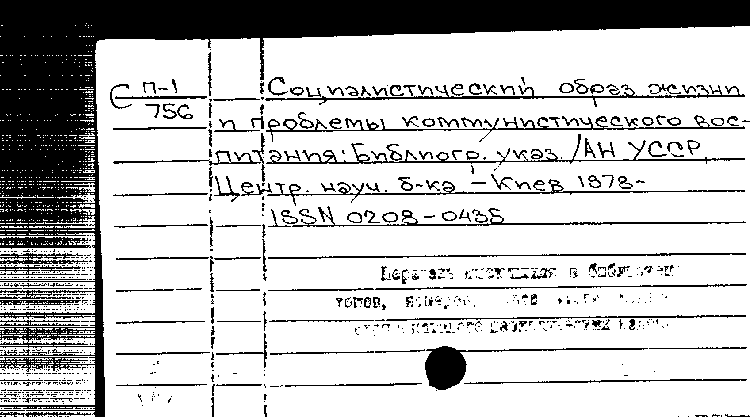 С П-1 Социалистический образ жизни
756
и проблемы коммунистического вос-
питания: Библиогр. указ. / АН УССР,
Центр. науч. б-ка – Киев, 1978-
ISSN 0208-0435
в библиотеке
томов, номеров,